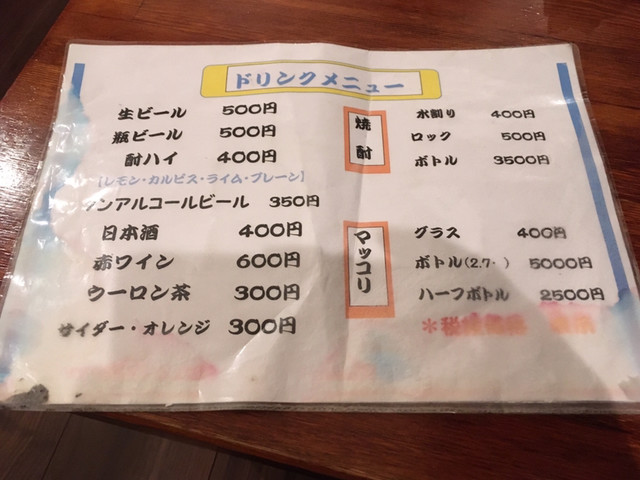 ドリンクメニュー
生ビール 500円
瓶ビール 500円
酎ハイ 400円
【レモン・カルピス・ライム・プレーン】
ノンアルコールビール 350円
日本酒 400円
赤ワイン 600円
ウーロン茶 300円
サイダー・オレンジ 300円
焼酎
水割り 400円
ロック 500円
ボトル 3500円
マッコリ
グラス 400円
ボトル(2.7 ) 5000円
ハーフボトル 2500円